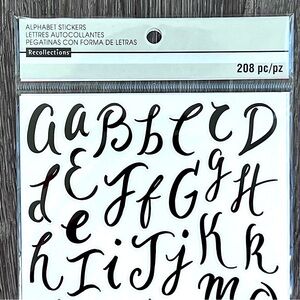 ALPHABET STICKERS
LETTRES AUTOCOLLANTES
PEGATINAS CON FORMA DE LETRAS
Recollections
208 pc/pz
a a B b C c D
d E e F f G g H
h I i J j K k
m